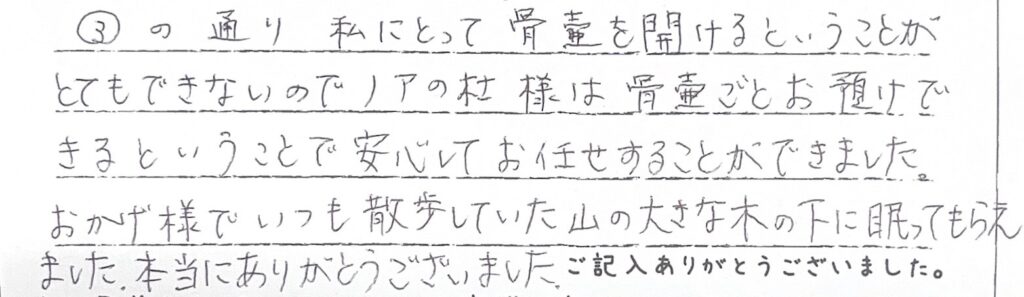 ③の通り 私にとって骨壷を開けるということが
とてもできないのでノアの杜様は骨壷ごとお預けで
きるということで安心してお任せすることができました。
おかげ様でいつも散歩していた山の大きな木の下に眠ってもらえ
ました。本当にありがとうございました。ご記入ありがとうございました。